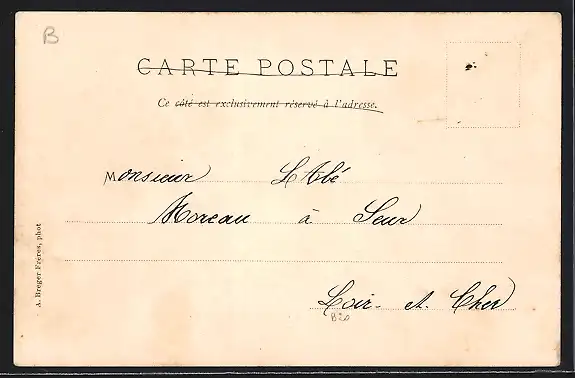 B
CARTE POSTALE
Ce côté est exclusivement réservé à l'adresse.
Monsieur L'Abé
Moreau à Seur
Loir-et-Cher
A. Breger Frères, phot